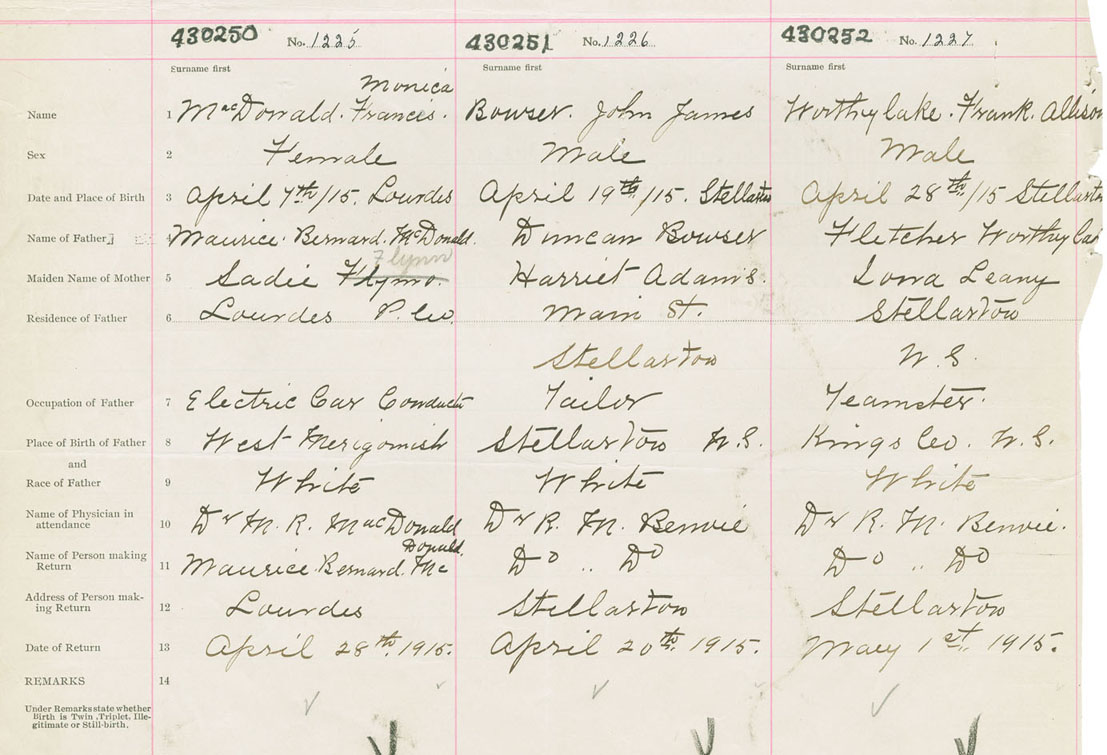 430250 No. 1225 430251 No. 1226 430252 No. 1227
Surname first Surname first Surname first
Monica
Name 1 MacDonald. Francis. Bowser. John James Worthylake. Frank. Allison
Sex 2 Female Male Male
Date and Place of Birth 3 April 7th/15. Lourdes April 19th/15. Stellarton April 28th/15 Stellarton
Name of Father 4 Maurice. Bernard. McDonald. Duncan Bowser Fletcher Worthylake
Flynn
Maiden Name of Mother 5 Sadie Harriet Adams. Iona Leany
Residence of Father 6 Lourdes P. Co. Main St. Stellarton
Stellarton N. S.
Occupation of Father 7 Electric Car Conductor Tailor Teamster.
Place of Birth of Father 8 West Merigomish Stellarton N. S. Kings Co. N. S.
and
Race of Father 9 White White White
Name of Physician in
attendance 10 Dr M. R. MacDonald Dr R. M. Benvie Dr R. M. Benvie.
Donald.
Name of Person making
Return 11 Maurice. Bernard. Mc Do .. Do Do .. Do
Address of Person mak-
ing Return 12 Lourdes Stellarton Stellarton
Date of Return 13 April 28th. 1915. April 20th. 1915. May 1st 1915.
REMARKS 14
Under Remarks state whether
Birth is Twin, Triplet, Ille-
gitimate or Still-birth.